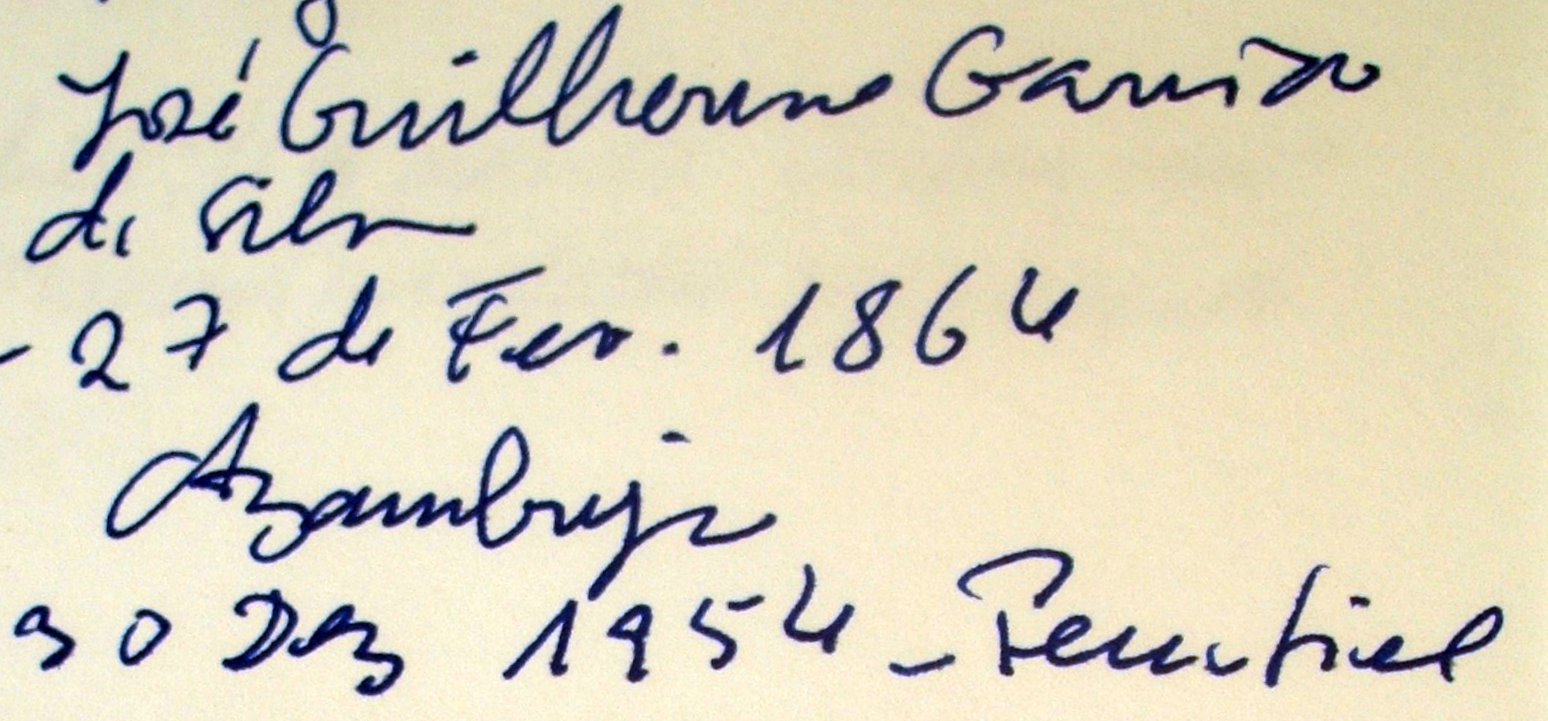 José Guilherme Garrido
da Silva
- 27 de Fev. 1864
Azambuja
30 Dez 1954 -